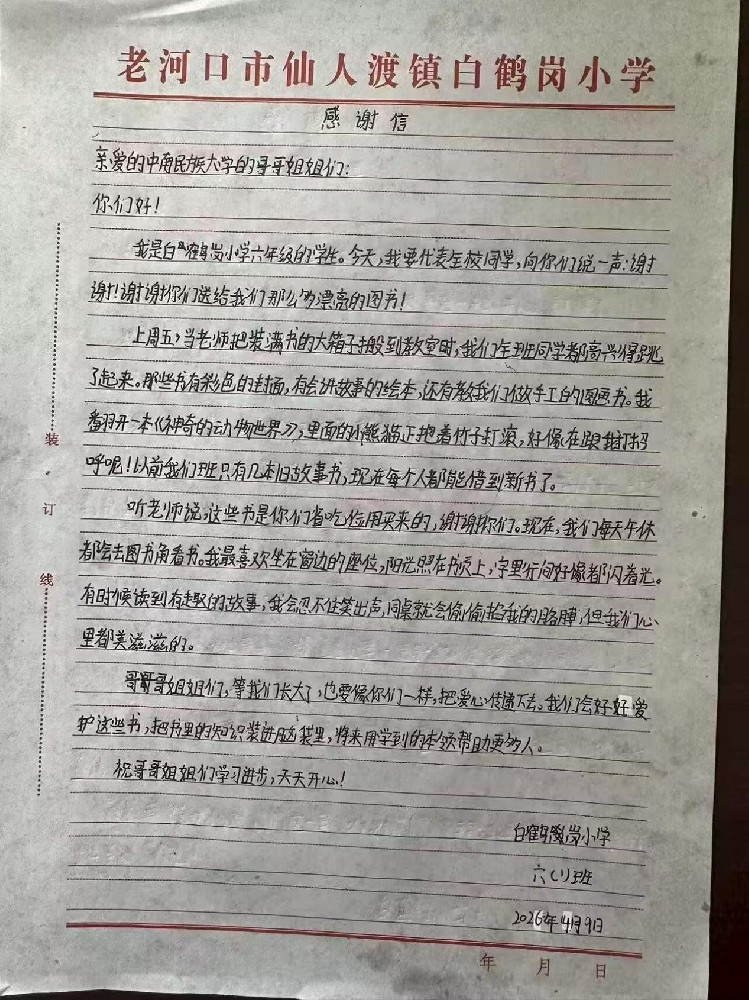 老河口市仙人渡镇白鹤岗小学
感谢信
亲爱的中南民族大学的哥哥姐姐们：
你们好！
我是白鹤岗小学六年级的学生。今天，我要代表全校同学，向你们说一声：谢
谢！谢谢你们送给我们那么多漂亮的图书！
上周五，当老师把装满书的大箱子搬到教室时，我们全班同学都高兴得跳
了起来。那些书有彩色的封面，有会讲故事的绘本，还有教我们做手工的图画书。我
翻开一本《神奇的动物世界》，里面的小熊猫正抱着竹子打滚，好像在跟我打招
呼呢！以前我们班只有几本旧故事书，现在每个人都能借到新书了。
听老师说，这些书是你们省吃俭用买来的，谢谢你们。现在，我们每天午休
都会去图书角看书。我最喜欢坐在窗边的座位，阳光照在书页上，字里行间好像都闪着光。
有时候读到有趣的故事，我会忍不住笑出声，同桌就会偷偷掐我的胳膊，但我们心
里都美滋滋的。
哥哥姐姐们，等我们长大了，也要像你们一样，把爱心传递下去。我们会好好爱
护这些书，把书里的知识装进脑袋里，将来用学到的本领帮助更多人。
祝哥哥姐姐们学习进步，天天开心！
白鹤岗小学
六（1）班
2026年4月9日
年 月 日
装
订
线